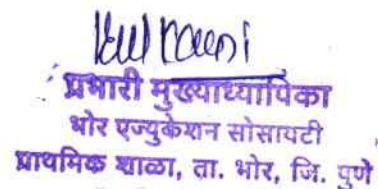 प्रभारी मुख्याध्यापिका
भोर एज्युकेशन सोसायटी
प्राथमिक शाळा, ता. भोर, जि. पुणे